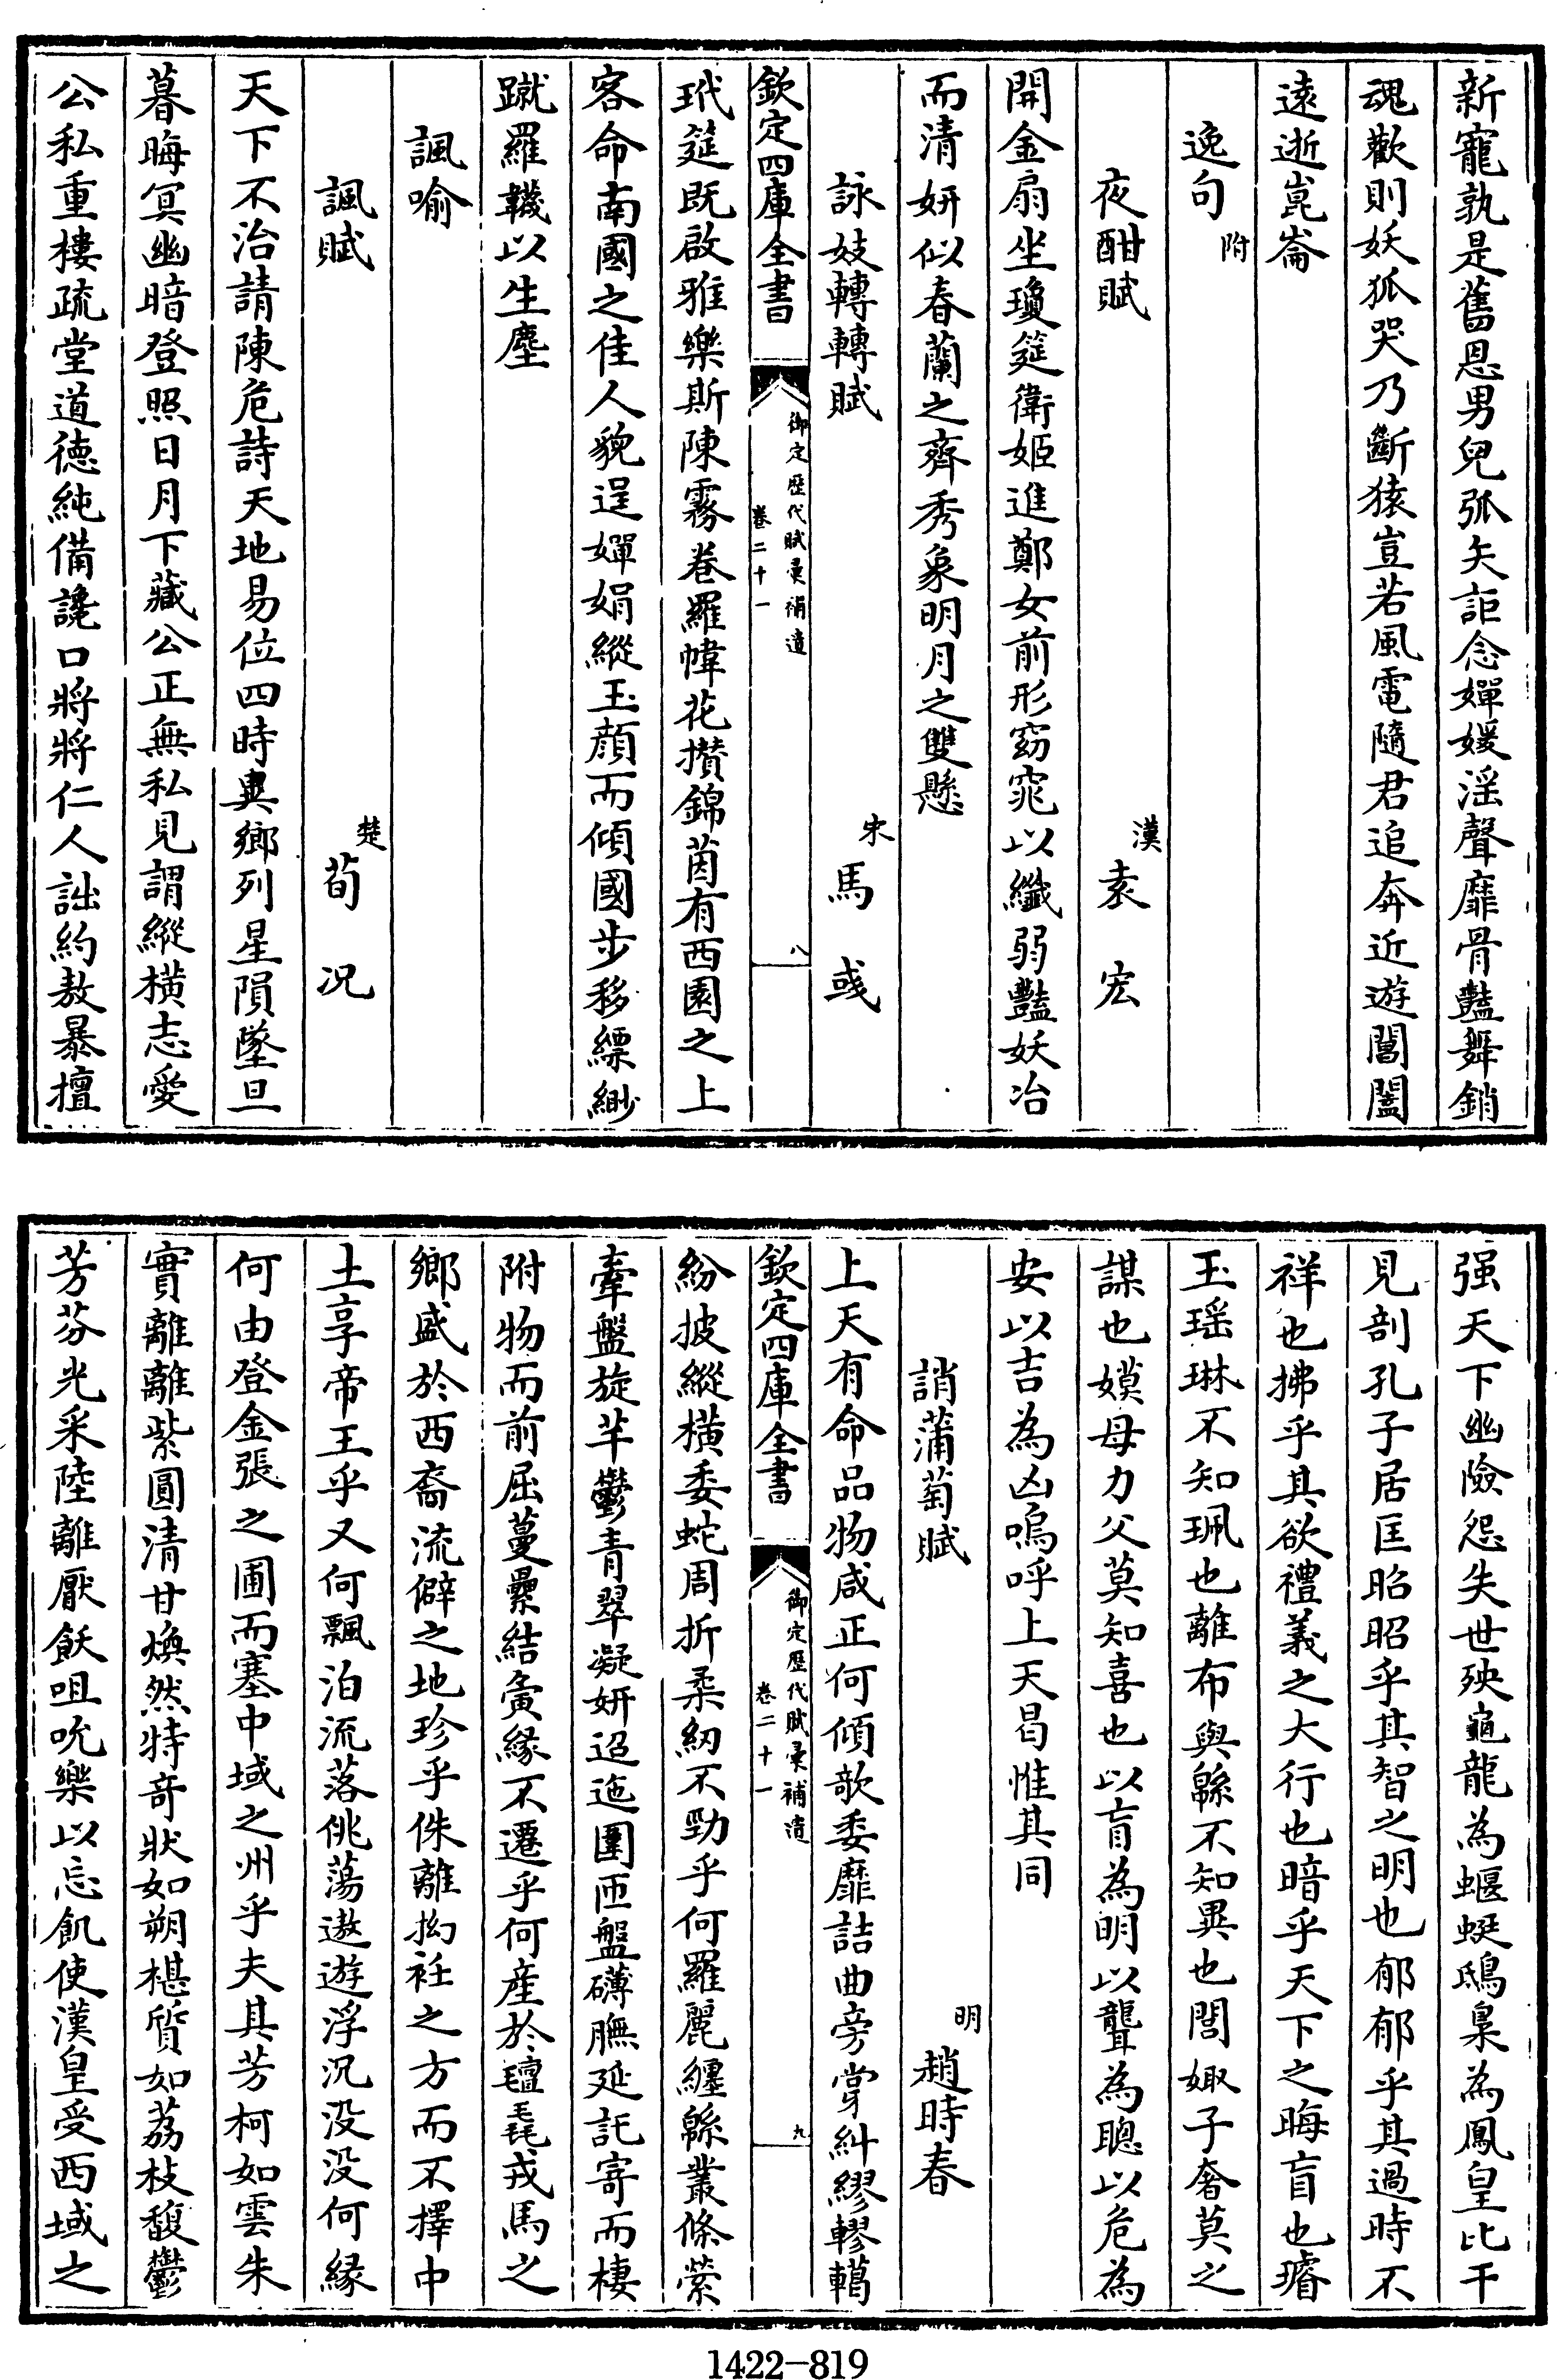 新寵孰是舊恩男兒弧矢詎念嬋媛淫聲靡骨豔舞銷
魂歡則妖狐哭乃斷猿豈若風電隨君追奔近遊閶闔
遠逝崑崙
逸句附
夜酣賦 漢 袁宏
開金扇坐瓊筵衛姬進鄭女前形窈窕以纖弱豔妖冶
而清妍似春蘭之齊秀象明月之雙懸
詠妓轉轉賦 宋 馬彧
欽定四庫全書 御定歷代賦彙補遺 卷二十一 八
玳筵既啟雅樂斯陳霧卷羅幃花攅錦茵有西園之上
客命南國之佳人貌逞嬋娟縱玉顔而傾國步移縹緲
蹴羅韈以生塵
諷喻
諷賦 楚 荀況
天下不治請陳佹詩天地易位四時異鄉列星隕墜旦
暮晦冥幽暗登照日月下藏公正無私見謂縱橫志愛
公私重樓疏堂道徳純備讒口將將仁人詘約敖暴擅
强天下幽險怨失世殃龜龍為蝘蜓鴟梟為鳳皇比干
見剖孔子居匡昭昭乎其智之明也郁郁乎其過時不
祥也拂乎其欲禮義之大行也暗乎天下之晦盲也璿
玉瑶琳不知珮也離布與緜不知異也閭娵子奢莫之
謀也嫫母力父莫知喜也以盲為明以聾為聰以危為
安以吉為凶嗚呼上天曷惟其同
誚蒲萄賦 明 趙時春
上天有命品物咸正何傾欹委靡詰曲旁牚糾繆轇轕
欽定四庫全書 御定歷代賦彙補遺 卷二十一 九
紛披縱橫委蛇周折柔紉不勁乎何羅麗纏緜叢條縈
牽盤旋芊鬱青翠凝妍迢迤圍匝盤礴膴延託寄而棲
附物而前屈蔓纍結夤縁不遷乎何産於氊毳戎馬之
鄉盛於西裔流僻之地珍乎侏離抝衽之方而不擇中
土享帝王乎又何飄泊流落佻蕩遨遊浮沉没没何縁
何由登金張之圃而塞中域之州乎夫其芳柯如雲朱
實離離紫圓清甘煥然特竒狀如朔椹質如荔枝馥鬱
芳芬光采陸離厭飫咀吮樂以忘飢使漢皇受西域之
1422—819